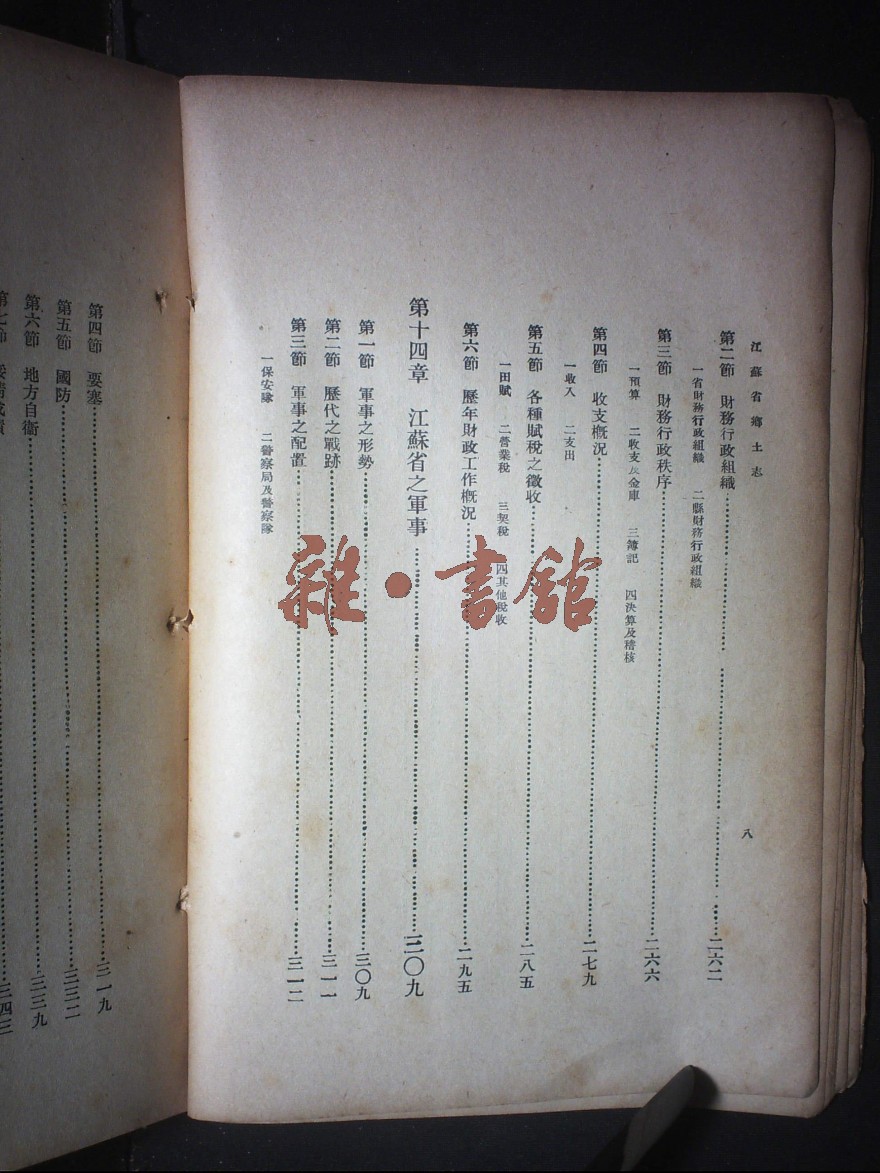 江蘇省鄉土志
八
第二節 財務行政組織……二六二
一省財務行政組織 二縣財務行政組織
第三節 財務行政秩序……二六六
一預算 二收支及金庫 三簿記 四決算及稽核
第四節 收支概況……二七九
一收入 二支出
第五節 各種賦稅之徵收……二八五
一田賦 二營業稅 三契稅 四其他稅收
第六節 歷年財政工作概況……二九五
第十四章 江蘇省之軍事……三〇九
第一節 軍事之形勢……三〇九
第二節 歷代之戰跡……三一一
第三節 軍事之配置……三一二
一保安隊 二警察局及警察隊
雜·書館
第四節 要塞……三一九
第五節 國防……三三二
第六節 地方自衞……三三九
三四三